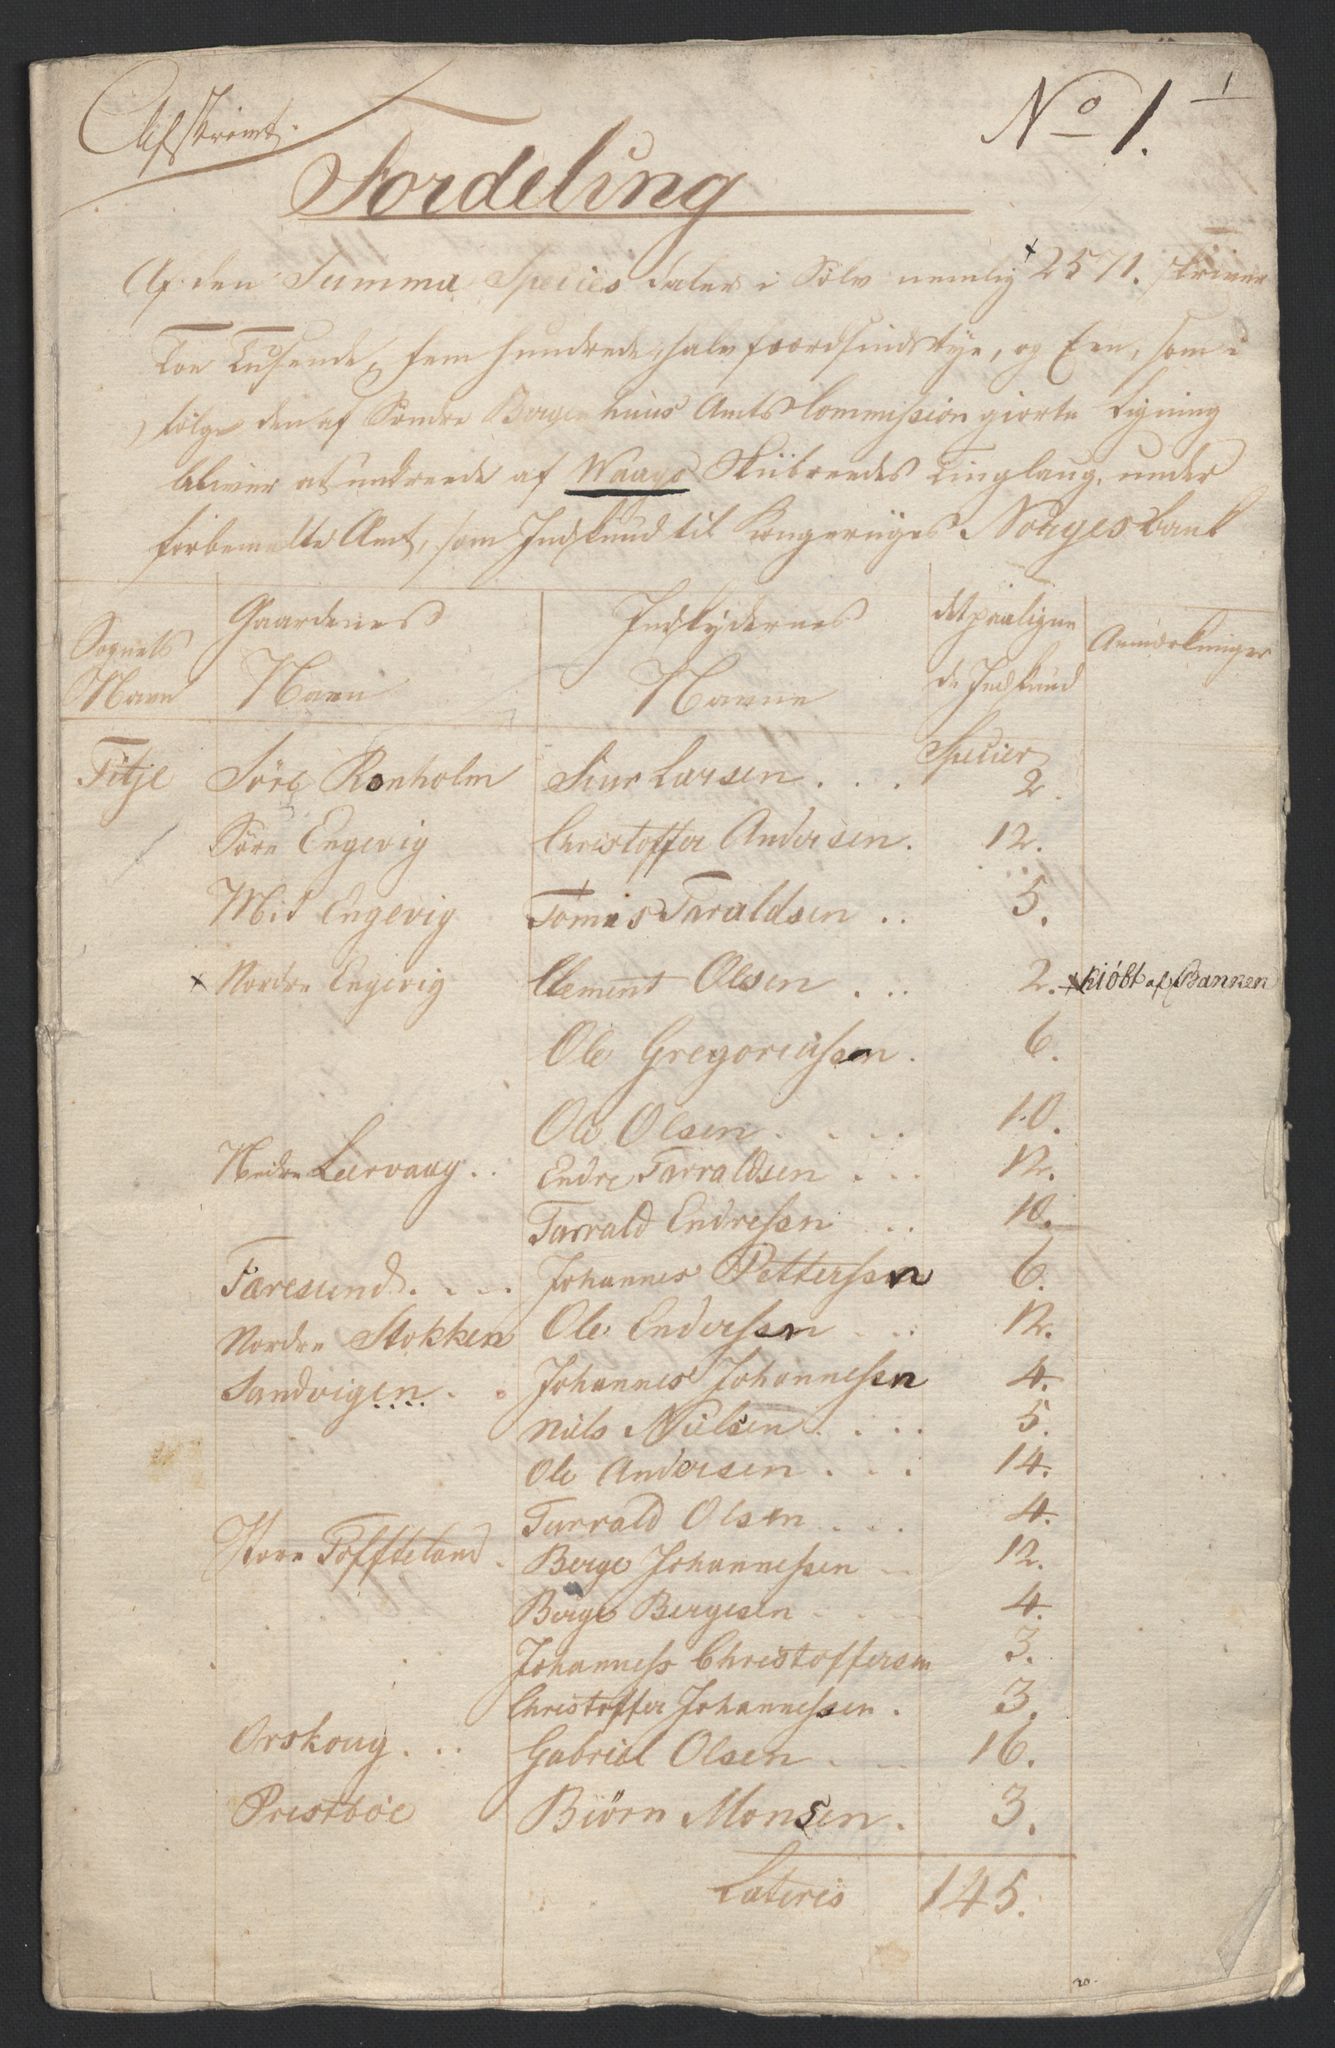 Afskrivt.
No 1.
1
Fordeling
Af den Summa Species daler i Sølv nemlig 2571. skriver
Toe Tusende, fem hundrede, halv fierdsindstyve, og Een, som i
følge den af Søndre Bergenhuus Amts Commission giorte Ligning
bliver at udreede af Waags Skibreedes Tinglaug, under
forbemelte Amt, som Indskud til Kongeriiges Norges bank
Sognets Navn | Gaardenes Navn | Indskydernes Navne | det paaligne de Indskud | Anmærkninger
Species
Fitje Søre Rønholm Siur Larsen . . . 2.
Søre Engevig Christoffer Andersen. 12.
Mid Engevig Tomas Taraldsen . . 5.
x Nordre Engevig Clement Olsen . . . 2. x kiöbt af Banken
Ole Gregoriussen . 6.
Ole Olsen . . . 10.
Nedre Lervaag . . Endre Tarraldsen . . . 12.
Tarrald Endressen . . 10.
Færesund . . . . Johannes Petterssen 6.
Nordre Stokken Ole Enderssen . . . 12.
Sandvigen . . Johannes Johannessen 4.
Niels Nielsen . . . . 5.
Ole Andersen . . . 14.
Tarrald Olsen . . . 4.
Store Toffteland . Berge Johannessen . . 12.
Berge Bergesen . . . 4.
Johanness Christoffersen 3.
Christoffer Johannessen . 3.
Orskoug . . . Gabriel Olsen . . . 16.
Prestbøe Biörn Monsen . 3.
Lateris 145.
20.